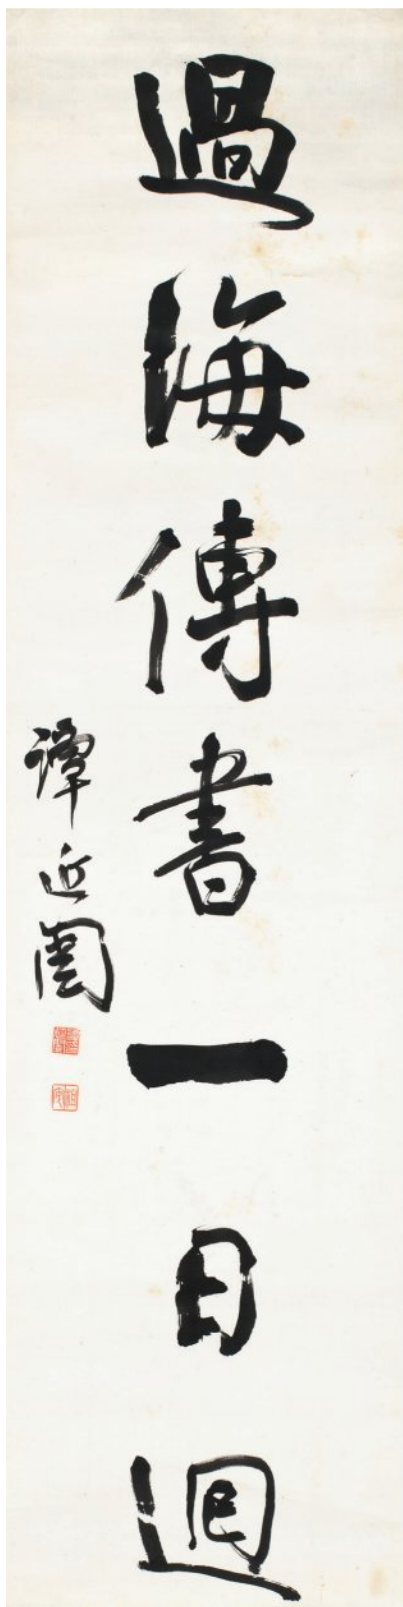 過海傳書一日迴
譚延闓